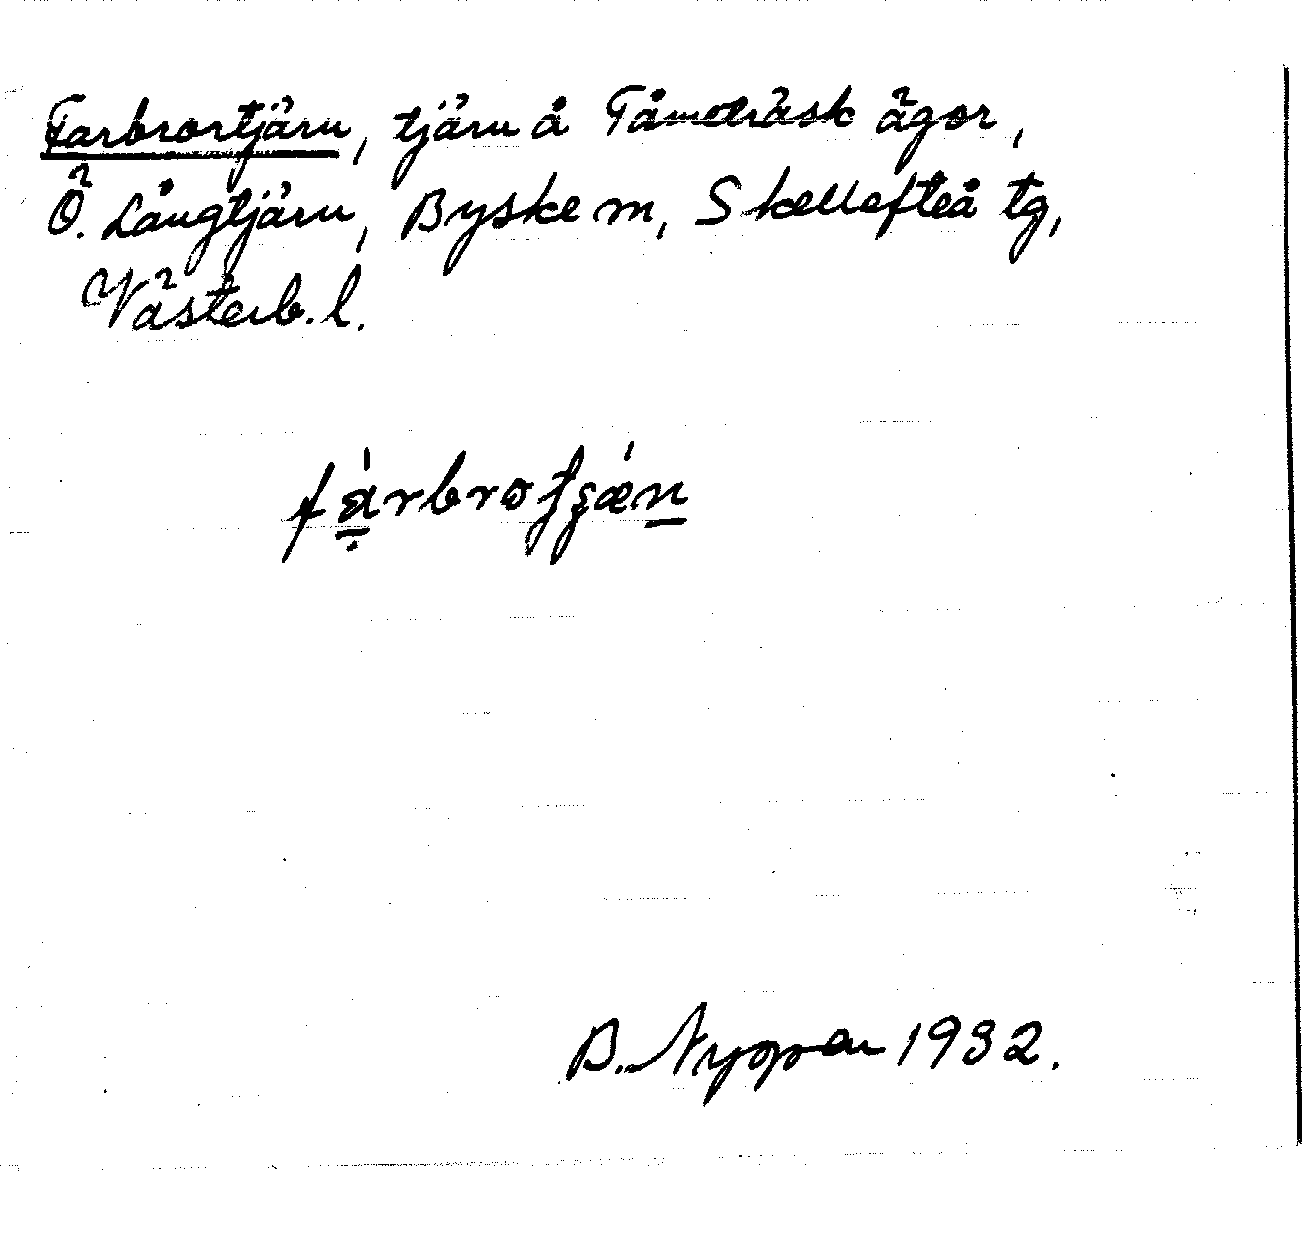 Farbrortjärn, tjärn å Tåmeträsk ägor,
Ö. Långtjärn, Byske sn, Skellefteå tg,
Västerb. l.
B. Nyman 1932.